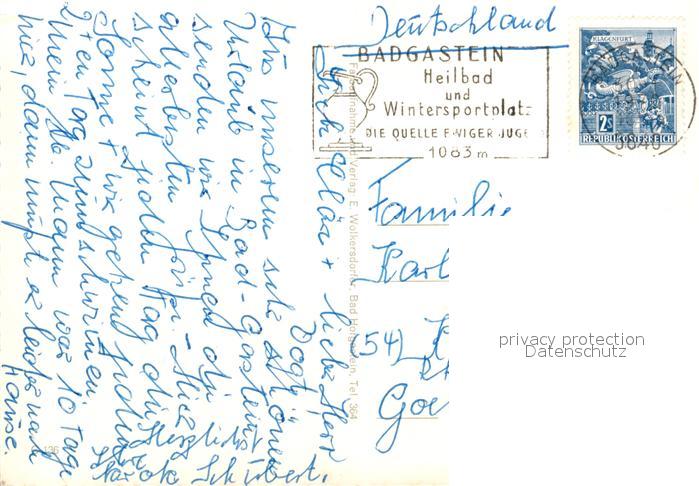 Deutschland
BADGASTEIN
Heilbad
und
Wintersportplatz
DIE QUELLE EWIGER JUGE
1083 m
KLAGENFURT
2S
REPUBLIK ÖSTERREICH
5640
Familie
Karl
(54)
Goe
privacy protection
Datenschutz
Verlag E. Wolkersdorfer, Bad Hofgastein, Tel. 364
Liebe Klär + lieber Herr
Vogt
Aus unserem sehr schönen
Urlaub in Bad-Gastein
senden wir Ihnen die
allerbesten Grüße. Hier
scheint jeden Tag die
Sonne + wir gehen jeden
2ten Tag zum schwimmen.
Mein lb. Mann war 10 Tage
hier, dann mußte er leider nach
Hause.
Herzlichst
Ihre
Schubert.